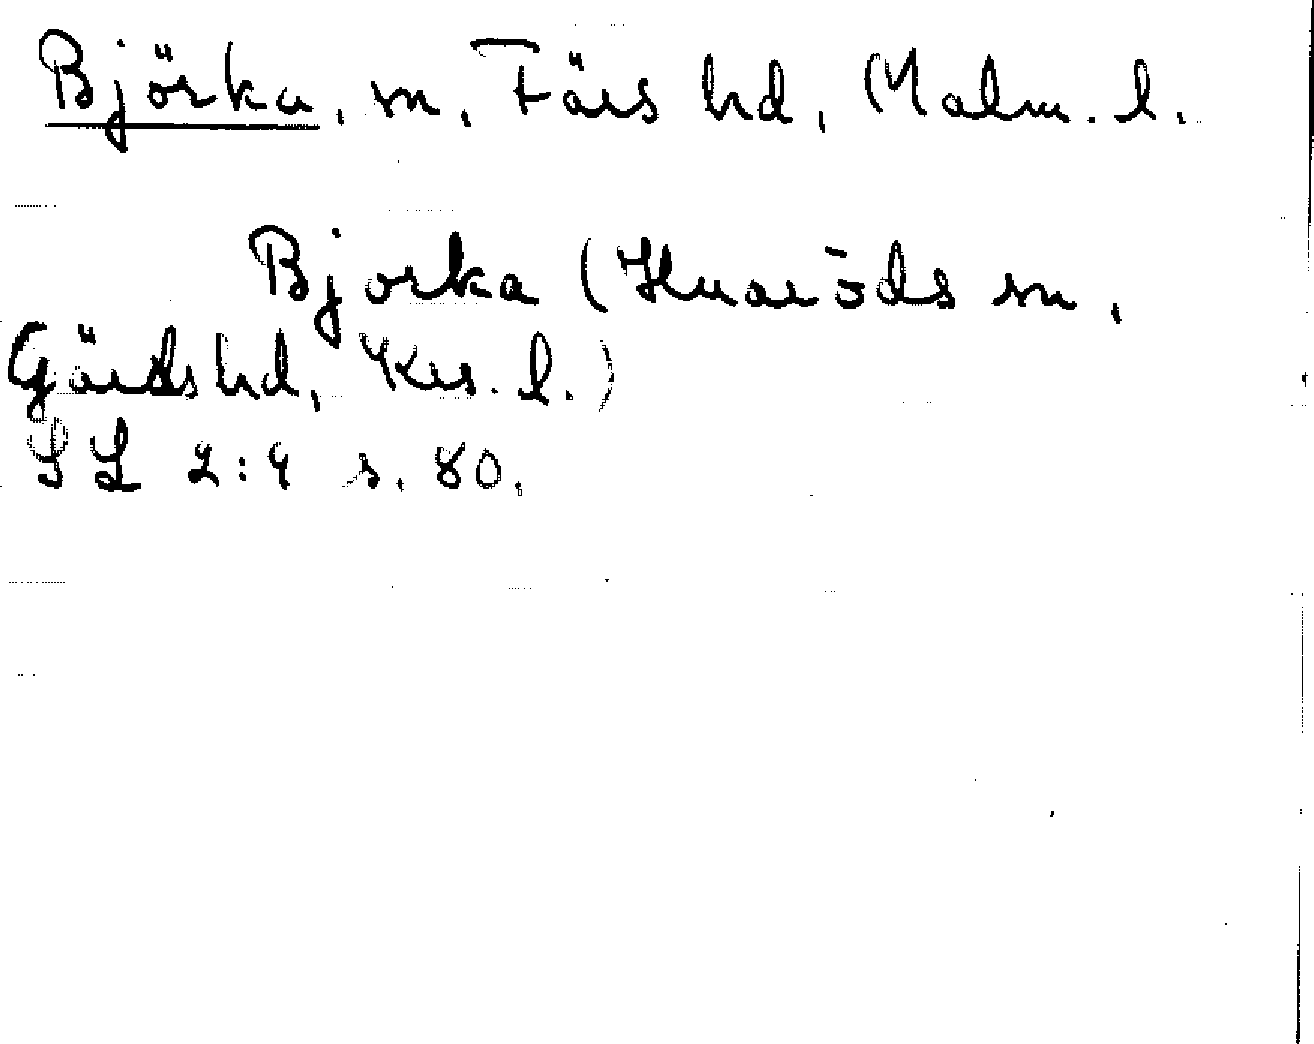 Björka, sn, Färs hd, Malm. l.
Bjorka (Huaröds sn,
Gärds hd, Krs. l.)
SL 2:4 s. 80.